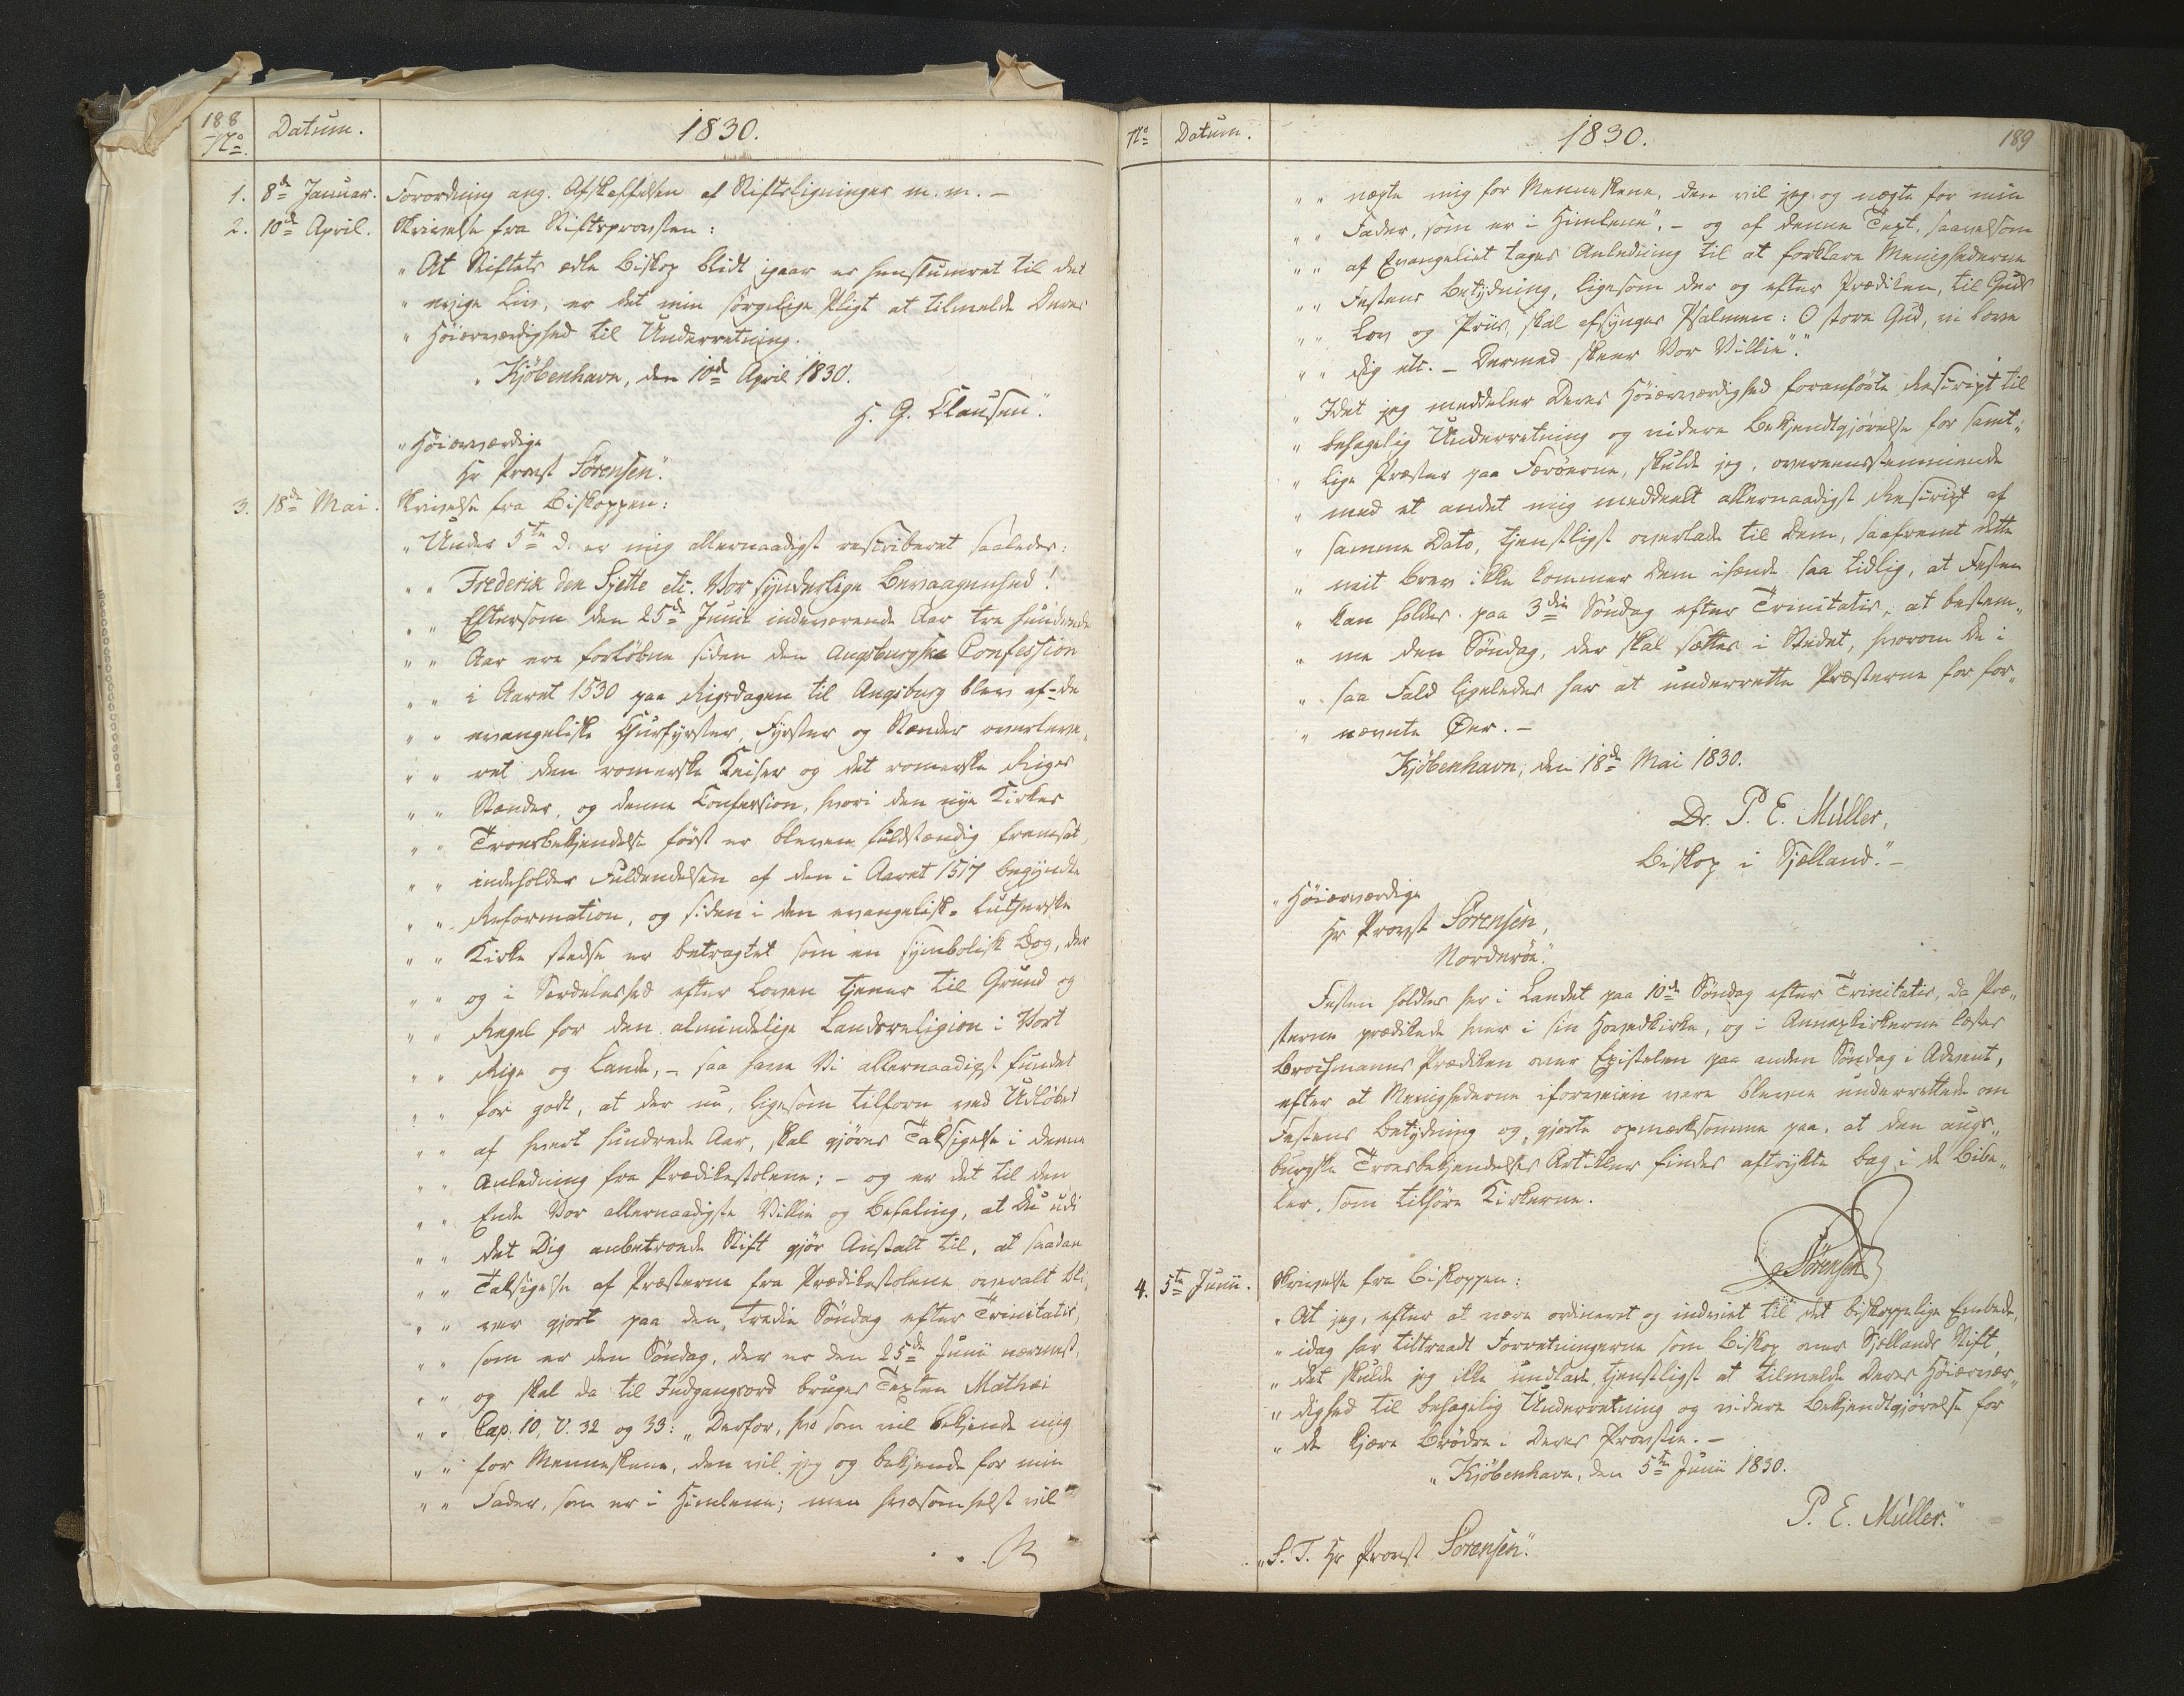 188
No. Datum. 1830.
1. 8de Januar. Forordning ang. Afskaffelsen af Stiftsligninger m. m. –
2. 10de April. Skrivelse fra Stiftsprovsten:
„At Stiftets ædle Biskop blidt igaar er henslumret til det
„ evige Liv, er det min sørgelige Pligt at tilmelde Deres
„ Høiærværdighed til Underretning.
„ Kjöbenhavn, den 10de April 1830.
H. G. Clausen.“
„Høiærværdige
Hr Provst Sörensen“.
3. 18de Mai. Skrivelse fra Biskoppen:
„Under 5te d. er mig allernaadigst rescriberet saaledes:
„ „ Frederik den Sjette etc. Vor synderlige Bevaagenhed!
„ „ Eftersom den 25de Junii indeværende Aar tre hundrede
„ „ Aar ere forløbne siden den Augsburgske Confession
„ „ i Aaret 1530 paa Rigsdagen til Augsburg blev af de
„ „ evangeliske Churfyrster, Fyrster og Stænder overleve„
„ „ ret den romerske Keiser og det romerske Riges
„ „ Stænder, og denne Confession, hvori den nye Kirkes
„ „ Troesbekjendelse først er bleven fuldstændig fremsat,
„ „ indeholder Fuldendelsen af den i Aaret 1517 begyndte
„ „ Reformation, og siden i den evangelisk-lutherske
„ „ Kirke stedse er betragtet som en symbolisk Bog, der
„ „ og i Særdeleshed efter Loven tjener til Grund og
„ „ Regel for den almindelige Landsreligion i Vort
„ „ Rige og Lande, – saa have Vi allernaadigst fundet
„ „ for godt, at der nu, ligesom tilforn ved Udløbet
„ „ af hvert hundrede Aar, skal gjøres Taksigelse i denne
„ „ Anledning fra Prædikestolene; – og er det til den
„ „ Ende Vor allernaadigste Villie og Befaling, at Du udi
„ „ det Dig anbetroede Stift gjør Anstalt til, at saadan
„ „ Taksigelse af Præsterne fra Prædikestolene overalt bli„
„ „ ver gjort paa den tredie Søndag efter Trinitatis,
„ „ som er den Søndag, der er den 25de Junii nærmest,
„ „ og skal da til Indgangsord bruges Texten Mathæi
„ „ Cap. 10, V. 32 og 33: „Derfor, hvo som vil bekjende mig
„ „ for Menneskene, den vil jeg og bekjende for min
„ „ Fader, som er i Himlene; men hvosomhelst vil
No Datum. 1830. 189
„ „ negte mig for Menneskene, den vil jeg og negte for min
„ „ Fader, som er i Himlene“. – og af denne Text, saavelsom
„ „ af Evangeliet tages Anledning til at forklare Menighederne
„ „ Festens Betydning, ligesom der og efter Prædiken, til Guds
„ „ Lov og Priis, skal afsynges Psalmen: O store Gud, vi love
„ „ dig etc. – Dermed skeer Vor Villie“.“
„ Idet jeg meddeler Deres Høiærværdighed foranførte Rescript til
„ behagelig Underretning og videre Bekjendtgjørelse for samt„
„ lige Præster paa Færøerne, skulde jeg, overeensstemmende
„ med et andet mig meddeelt allernaadigst Rescript af
„ samme Dato, tjenstligst overlade til Dem, saafremt dette
„ mit Brev ikke kommer Dem ihænde saa tidlig, at Festen
„ kan holdes paa 3die Søndag efter Trinitatis, at bestem„
„ me den Søndag, der skal sættes i Stedet, hvorom De i
„ saa Fald ligeledes har at underrette Præsterne for for„
„ nævnte Øer. –
Kjöbenhavn, den 18de Mai 1830.
Dr. P. E. Müller,
Biskop i Sjælland.“ –
„Høiærværdige
Hr Provst Sörensen,
Norderöe.“
Festen holdtes her i Landet paa 10de Søndag efter Trinitatis, da Præ„
sterne prædikede hver i sin Hovedkirke, og i Annexkirkerne læstes
Brochmanns Prædiken over Epistelen paa anden Søndag i Advent,
efter at Menighederne iforveien vare blevne underrettede om
Festens Betydning og gjorte opmærksomme paa, at den augs„
burgske Troesbekjendelses Artikler findes aftrykte bag i de Bib„
ler, som tilhøre Kirkerne.
Sörensen
4. 5te Junii. Skrivelse fra Biskoppen:
„ At jeg, efter at være ordineret og indviet til det biskoppelige Embede,
„ idag har tiltraadt Forretningerne som Biskop over Sjællands Stift,
„ det skulde jeg ikke undlade tjenstligst at tilmelde Deres Høiærvær„
„ dighed til behagelig Underretning og videre Bekjendtgjørelse for
„ de kjære Brødre i Deres Provstie. –
„ Kjöbenhavn, den 5te Junii 1830.
P. E. Müller.“
„S. T. Hr Provst Sörensen“.